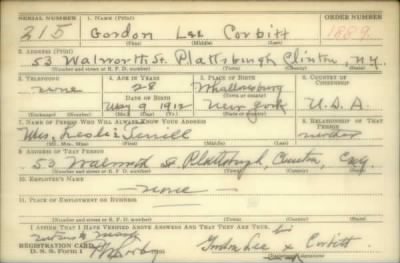 SERIAL NUMBER 1. NAME (Print) ORDER NUMBER
315 Gordon Lee Corbitt 1889
(First) (Middle) (Last)
2. ADDRESS (Print)
53 Walworth St. Plattsburgh Clinton, N.Y.
(Number and street or R. F. D. number) (Town) (County) (State)
3. TELEPHONE 4. AGE IN YEARS 5. PLACE OF BIRTH 6. COUNTRY OF CITIZENSHIP
none 28 Whallonsburg
DATE OF BIRTH
May 9 1912 New York U.S.A.
7. NAME OF PERSON WHO WILL ALWAYS KNOW YOUR ADDRESS 8. RELATIONSHIP OF THAT PERSON
Mrs. Leslie mother
(Mr., Mrs., Miss) (First) (Middle) (Last)
9. ADDRESS OF THAT PERSON
53 Walworth St Plattsburgh Clinton,
(Number and street or R. F. D. number) (Town) (County) (State)
10. EMPLOYER'S NAME
none
11. PLACE OF EMPLOYMENT OR BUSINESS
(Number and street or R. F. D. number) (Town) (County) (State)
I AFFIRM THAT I HAVE VERIFIED ABOVE ANSWERS AND THAT THEY ARE TRUE. his
mark
REGISTRATION CARD Gordon Lee x Corbitt
D. S. S. Form 1 (Registrant's signature)
mark